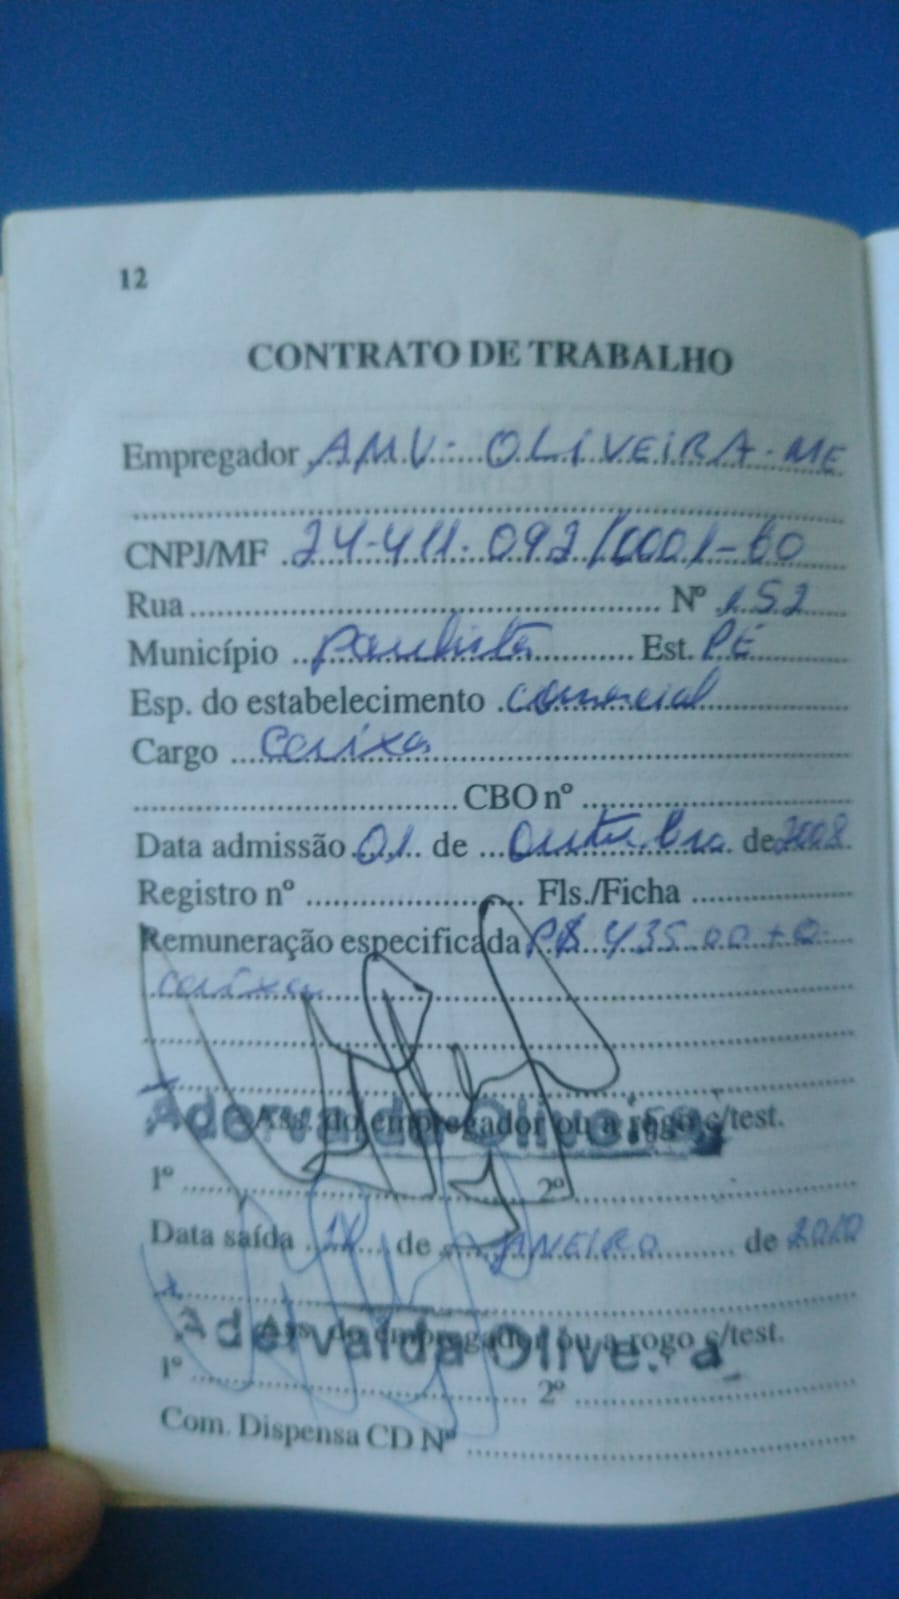 12
CONTRATO DE TRABALHO
Empregador AMV- OLIVEIRA-ME
CNPJ/MF 24-411.092/0001-60
Rua Nº 152
Município Paulista Est. PE
Esp. do estabelecimento comercial
Cargo Caixa
CBO nº
Data admissão 01 de Outubro de 2008
Registro nº Fls./Ficha
Remuneração especificada R$ 435.00 + Q.
caixa
Ass. do empregador ou a rogo c/test.
Adervalda Oliveira
1º 2º
Data saída de JANEIRO de 2010
Ass. do empregador ou a rogo c/test.
Adervalda Olive. a
1º 2º
Com. Dispensa CD Nº